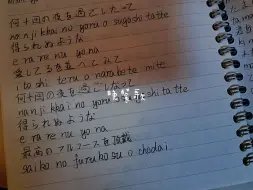 何十回の夜を過ごしたって
nanjikkai no yoru o sugoshitatte
得られぬような
e rare nu yo na
愛してるを並べてみて
i to shi teru o narabete mite
何十回の夜を過ごしたって
nanjikkai no yoru o sugoshitatte
得られぬような
e rare nu yo na
最高のフルコースを頂戴
saiko no furukosu o chodai.
晩餐歌